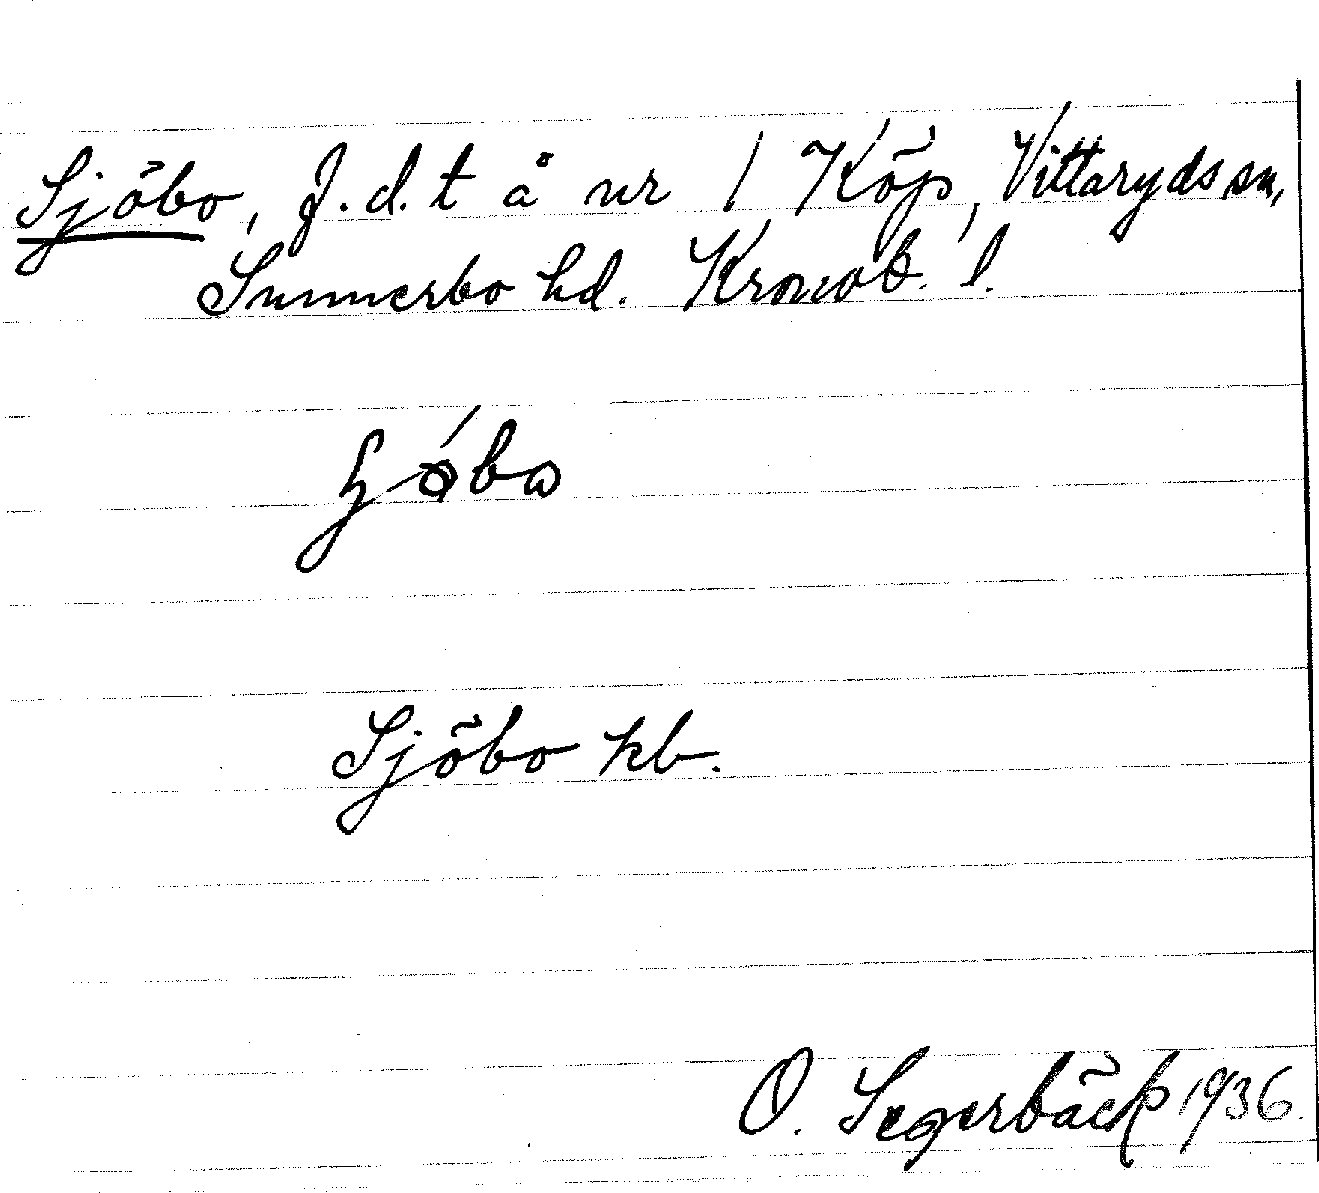 Sjöbo, f.d. t å nr 1 Köp, Vittaryds sn,
Sunnerbo hd. Kronob. l.
Sjöbo kb.
O. Segerbäck 1936.